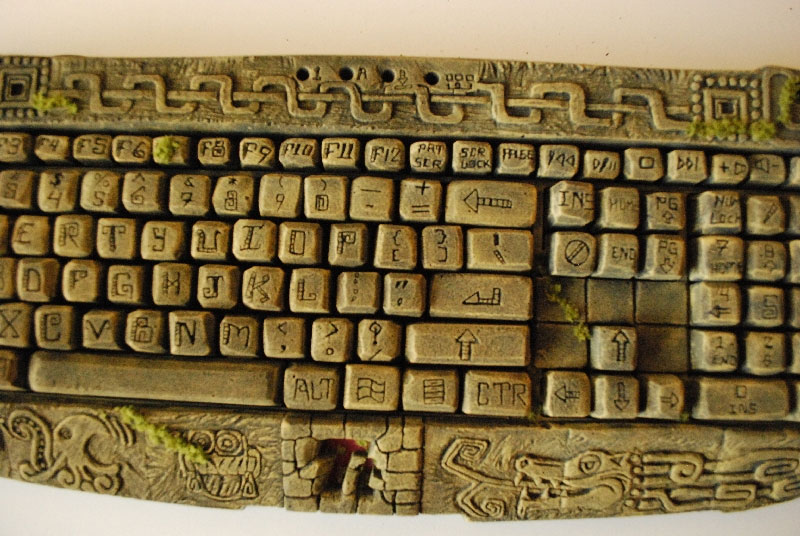 1 A B
F3 F4 F5 F6 F8 F9 F10 F11 F12 PRT SCR SCR LOCK PAUSE
$ 4 % 5 ^ 6 & 7 * 8 ( 9 ) 0 _ - + = INS HOME PG NUM LOCK /
E R T Y U I O P { [ } ] | \ END PG 7 HOME 8
D F G H J K L : ; " ' 4 5
X C V B N M < , > . ? / 1 END 2
ALT CTR 0 INS